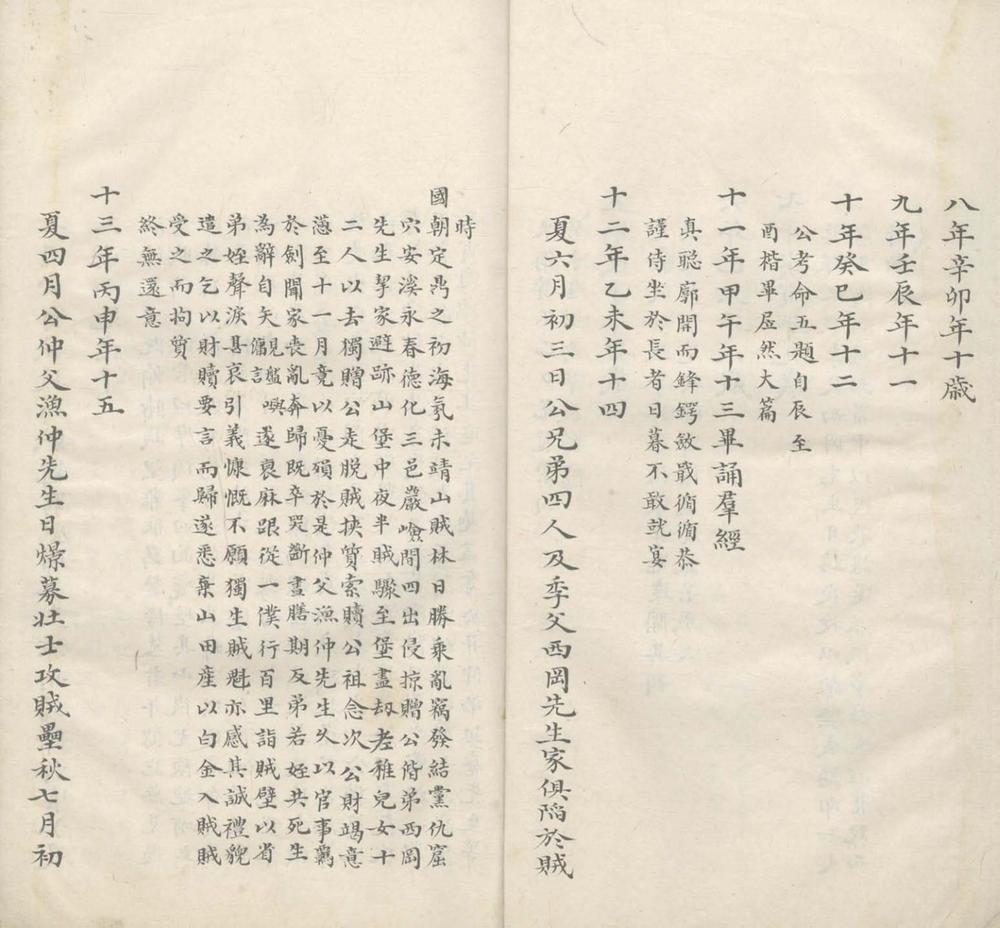 八年辛卯年十歳
九年壬辰年十一
十年癸巳年十二
公考命五題自辰至
酉楷畢居然大篇
十一年甲午年十三畢誦羣經
真聡廓開而鋒鍔斂戢循循恭
謹侍坐於長者日暮不敢就宴
十二年乙未年十四
夏六月初三日公兄弟四人及季父西岡先生家俱陷於賊
時
國朝定鼎之初海氛未靖山賊林日勝乘亂竊發結黨仇窟
穴安溪永春德化三邑巖嶮間四出侵掠贈公偕弟西岡
先生挈家避跡山堡中夜半賊驟至堡盡刼老稚兒女十
二人以去獨贈公走脱賊挾質索贖公祖念次公財竭意
懑至十一月竟以憂殞於是仲父漁仲先生久以官事羈
於劍聞家丧亂奔歸既卒哭斷晝膳期反弟若姪共死生
為辭自矢覼謐嶼遂衰麻跟從一僕行百里詣賊壁以省
弟姪聲淚甚哀引義慷慨不願獨生賊魁亦感其誠禮貌
遣之乞以財贖要言而歸遂悉棄山田産以白金入賊賊
受之而拘質
終無還意
十三年丙申年十五
夏四月公仲父漁仲先生日爆募壮士攻賊壘秋七月初